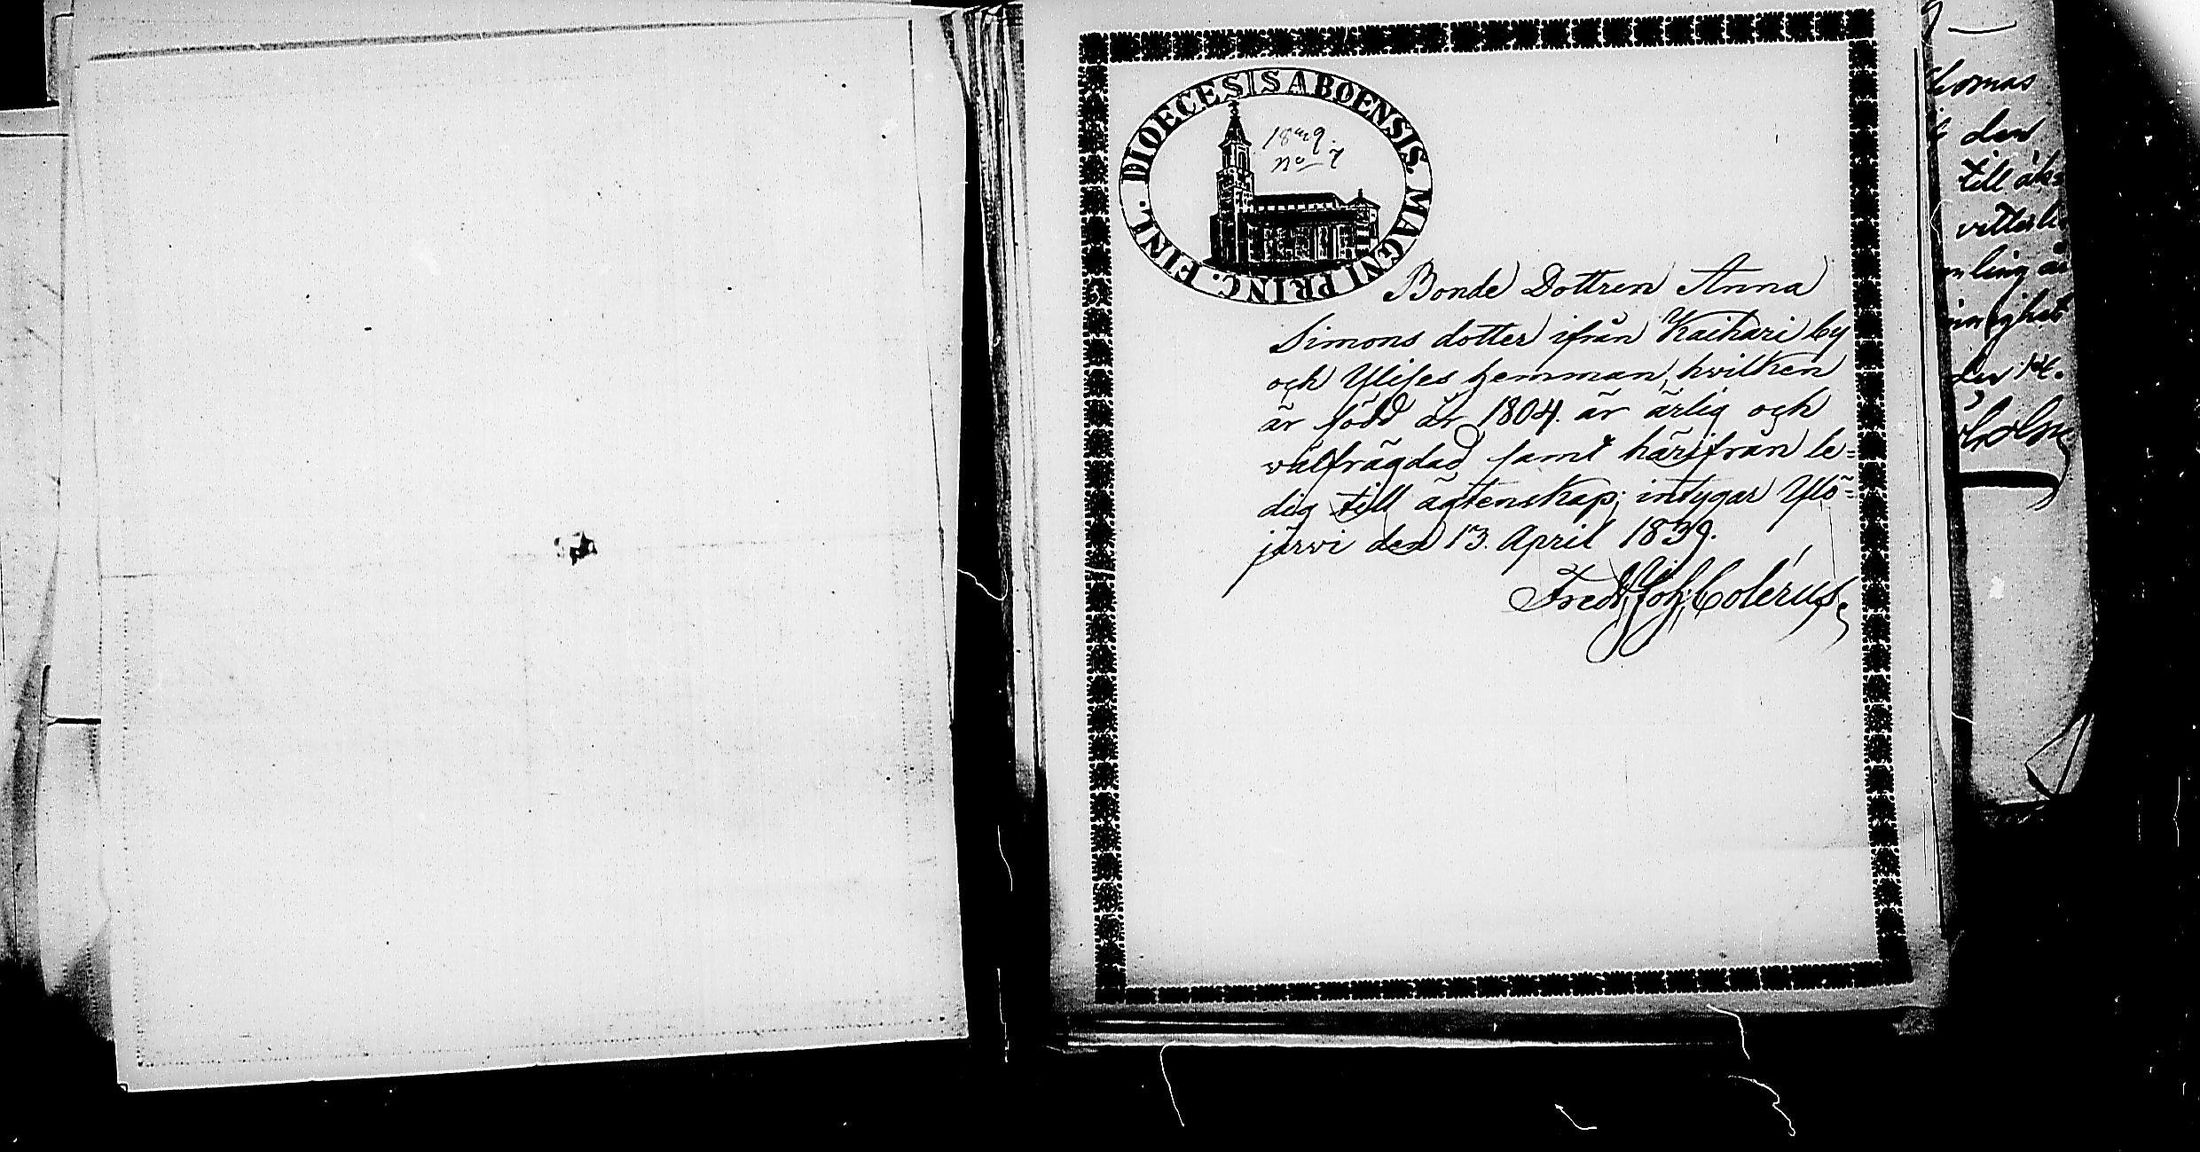 DIOECESIS ABOENSIS. MAGNI PRINC. FINL.
18 9.
No 7
Bonde Dottren Anna
Simons dotter ifrån Kaihari by
och Ylises hemman, hvilken
är född år 1804. är ärlig och
välfrägdad samt härifrån le=
dig till ägtenskap; intygar Ylö=
järvi den 13. April 1839.
Fredr. Joh. Colérus.
homas
den
till
den 14.